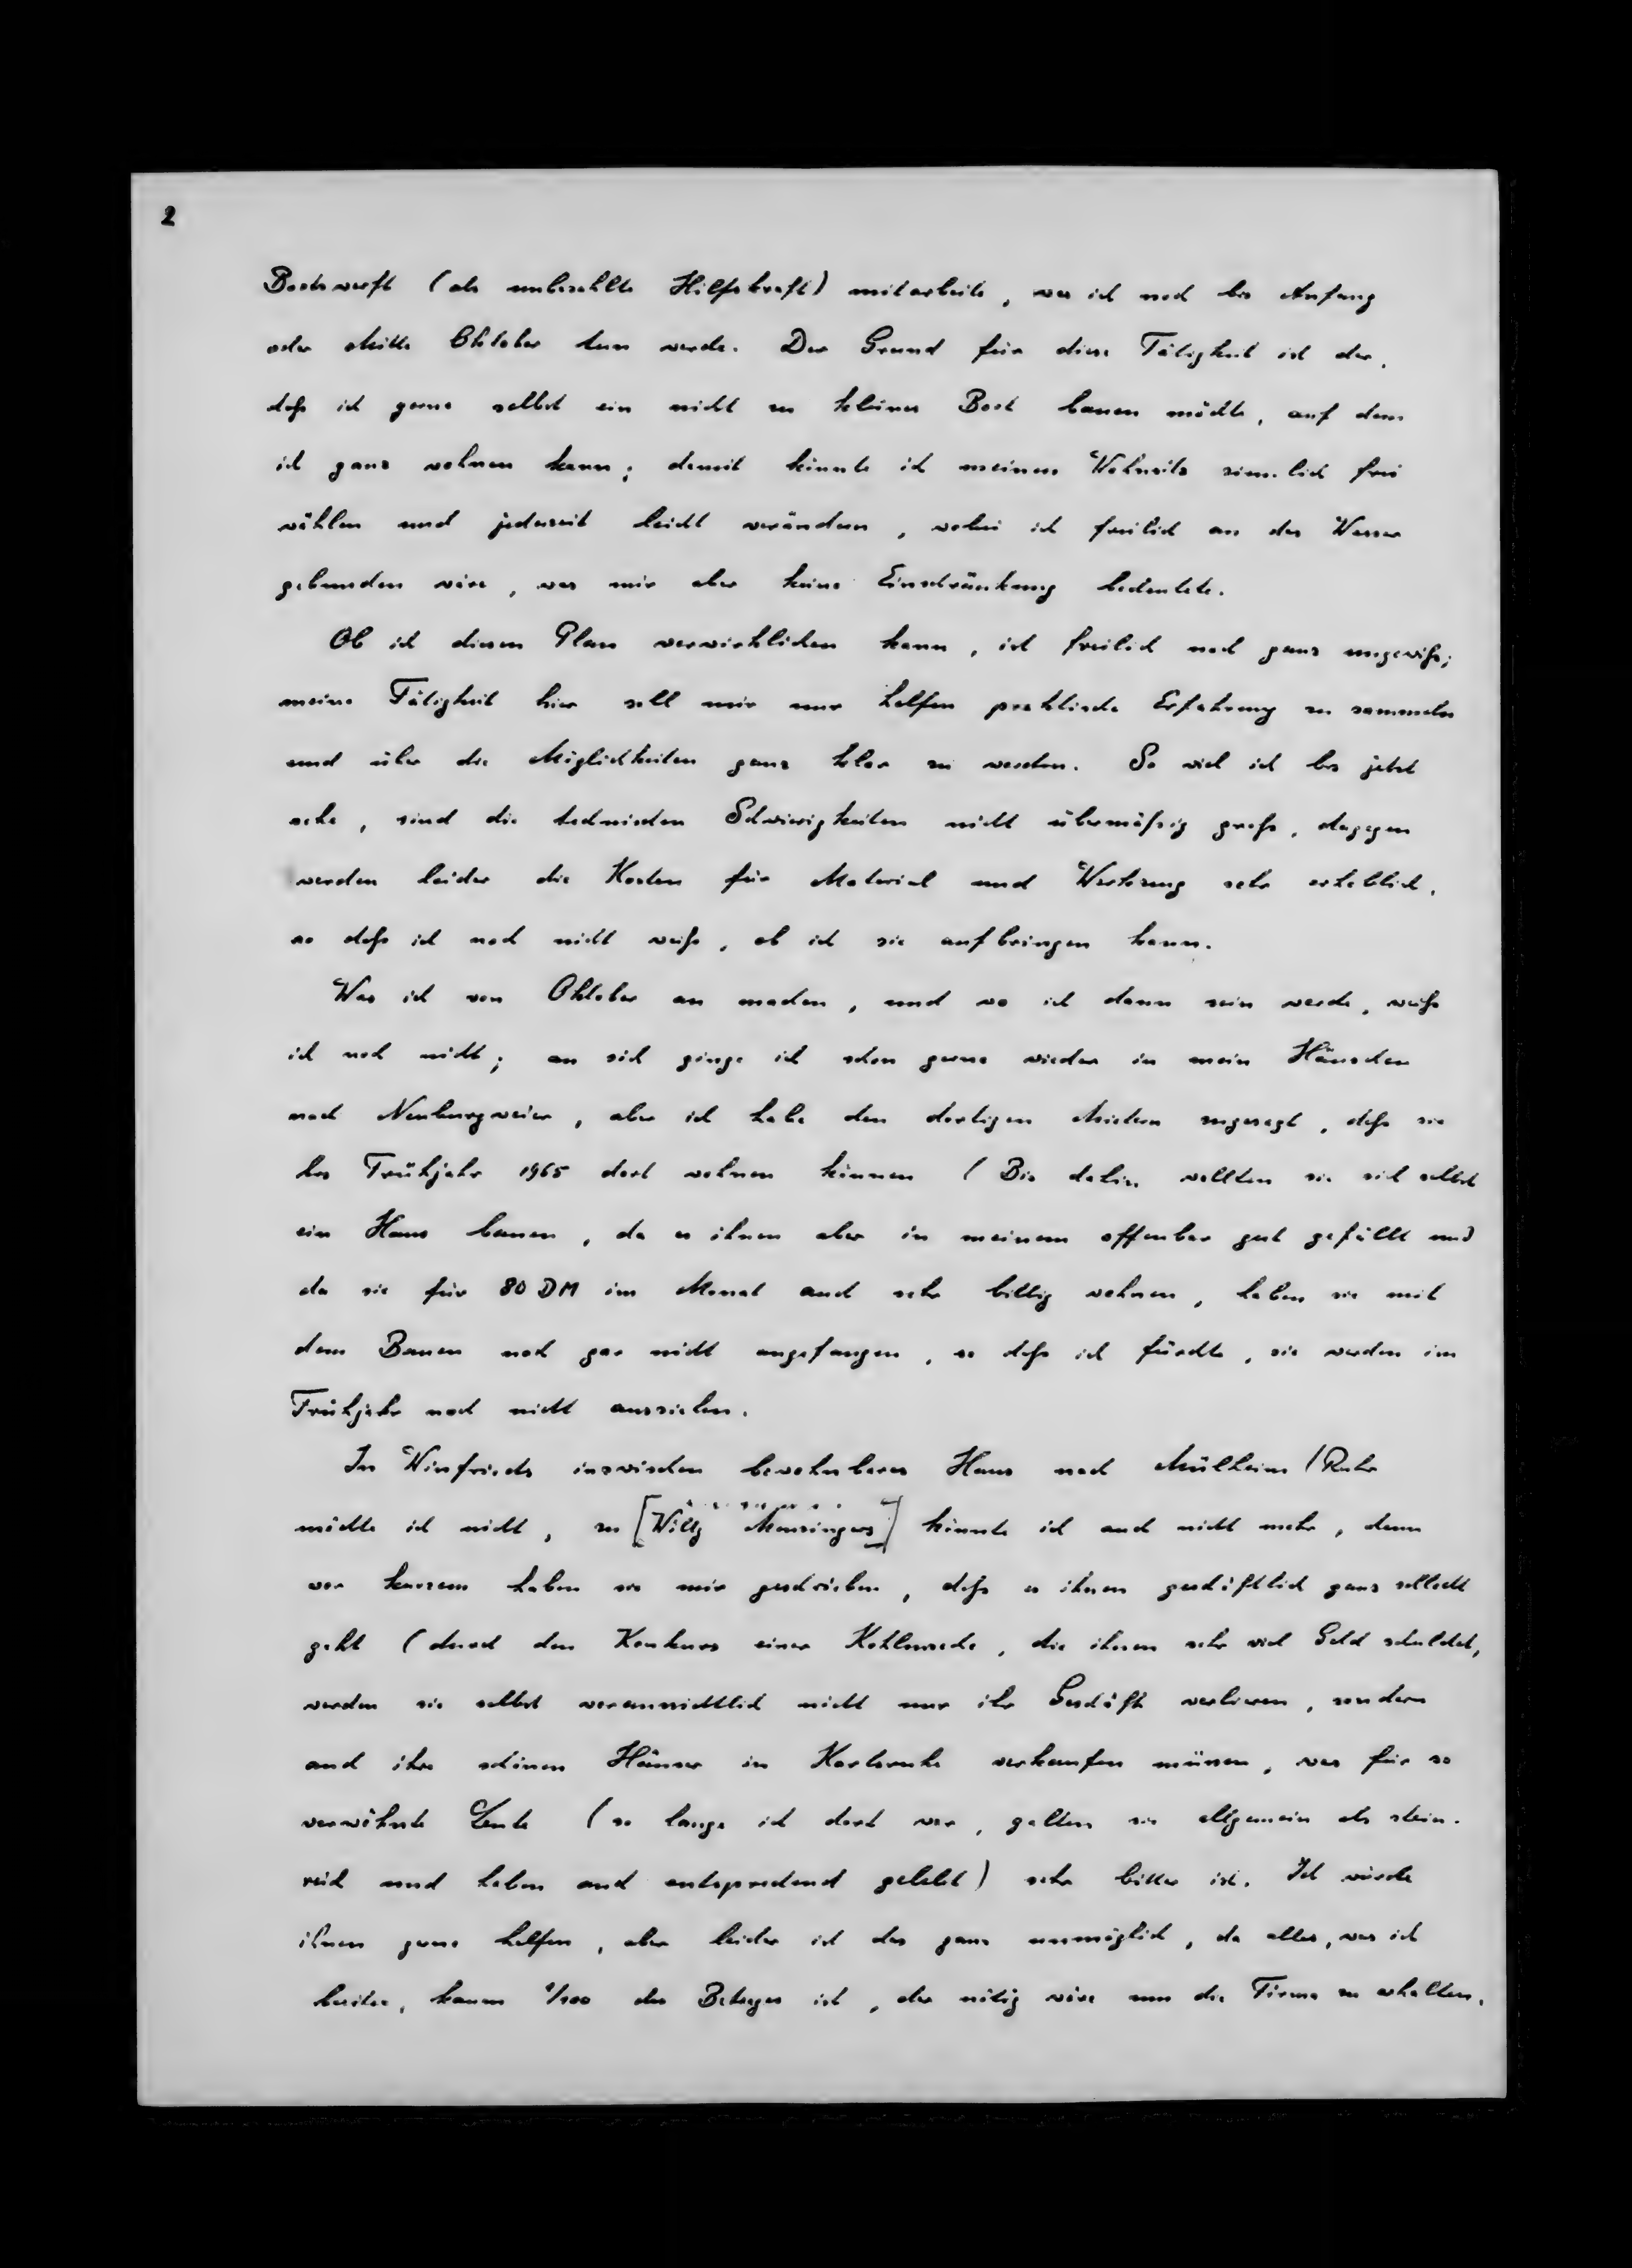 2
Bootswerft (als unbezahlte Hilfskraft) mitarbeite, was ich noch bis Anfang
oder Mitte Oktober tun werde. Der Grund für diese Tätigkeit ist der,
daß ich gerne selbst ein nicht zu kleines Boot bauen möchte, auf dem
ich ganz wohnen kann; damit könnte ich meinen Wohnsitz ziemlich frei
wählen und jederzeit leicht verändern, wobei ich freilich an das Wasser
gebunden wäre, was mir aber keine Einschränkung bedeutete.
Ob ich diesen Plan verwirklichen kann, ist freilich noch ganz ungewiß;
meine Tätigkeit hier soll mir nur helfen praktische Erfahrung zu sammeln
und über die Möglichkeiten ganz klar zu werden. So viel ich bis jetzt
sehe, sind die technischen Schwierigkeiten nicht übermäßig groß, dagegen
werden leider die Kosten für Material und Werkzeug sehr erheblich,
so daß ich noch nicht weiß, ob ich sie aufbringen kann.
Was ich von Oktober an machen, und wo ich dann sein werde, weiß
ich noch nicht; an sich ginge ich schon gerne wieder in mein Häuschen
nach Neuburgweier, aber ich habe den dortigen Mietern zugesagt, daß sie
bis Frühjahr 1965 dort wohnen können (Bis dahin wollten sie sich selbst
ein Haus bauen, da es ihnen aber in meinem offenbar gut gefällt und
da sie für 80 DM im Monat auch sehr billig wohnen, haben sie mit
dem Bauen noch gar nicht angefangen, so daß ich fürchte, sie werden im
Frühjahr noch nicht ausziehen.
In Winfrieds inzwischen bewohnbares Haus nach Mülheim/Ruhr
möchte ich nicht, zu [Willy Mensingers] könnte ich auch nicht mehr, denn
vor kurzem haben sie mir geschrieben, daß es ihnen geschäftlich ganz schlecht
geht (durch den Konkurs einer Kohlenzeche, die ihnen sehr viel Geld schuldet,
werden sie selbst voraussichtlich nicht nur ihr Geschäft verlieren, sondern
auch ihre schönen Häuser in Karlsruhe verkaufen müssen, was für so
verwöhnte Leute (so lange ich dort war, galten sie allgemein als stein-
reich und haben auch entsprechend gelebt) sehr bitter ist. Ich würde
ihnen gerne helfen, aber leider ist das ganz unmöglich, da alles, was ich
besitze, kaum 1/100 des Betrages ist, der nötig wäre um die Firma zu erhalten.